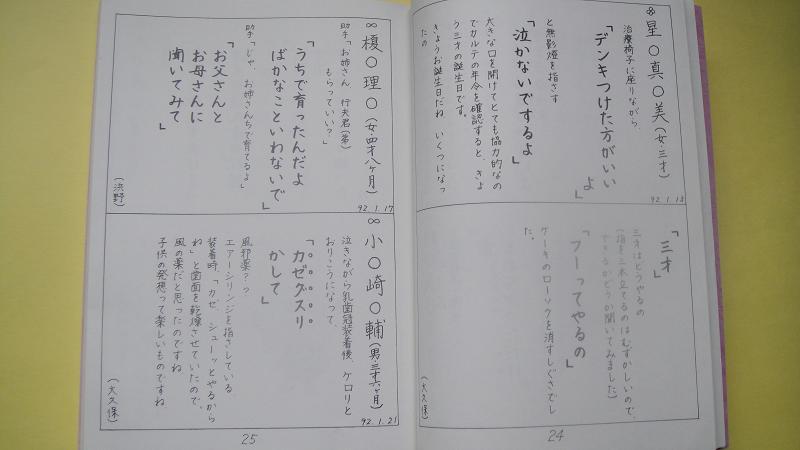 ※ 星〇真〇美(女・三才)
92.1.18
治療椅子に座りながら、
「デンキつけた方がいい
よ」
と無影燈を指さす
「泣かないでするよ」
大きな口を開けてとても協力的なの
でカルテの年令を確認すると、きょ
う三才の誕生日です。
きょうお誕生日だね いくつになっ
たの
「三才」
三才はどうやるの
(指を三本立てるのはむずかしいので、
できるかどうか聞いてみました)
「フーってやるの」
ケーキのローソクを消すしぐさでし
た。
(大久保)
24
∞ 榎〇理〇(女・四才八ヶ月)
92.1.17
助手「お姉さん 行夫君(弟)
もらっていい?」
「うちで育ったんだよ
ばかなこといわないで」
助手「じゃ、お姉さんちで育てるよ」
「お父さんと
お母さんに
聞いてみて」
(浜野)
∞ 小〇崎〇輔(男三才六ヶ月)
92.1.21
泣きながら乳歯冠装着後、ケロリと
おりこうになって
「カゼグスリ
かして」
風邪薬?っ
エアーシリンジを指さしている
装着時、「カゼ、シューッとやるから
ね」と歯面を乾燥させていたので、
風の薬だと思ったのですね
子供の発想って楽しいものですね
(大久保)
25